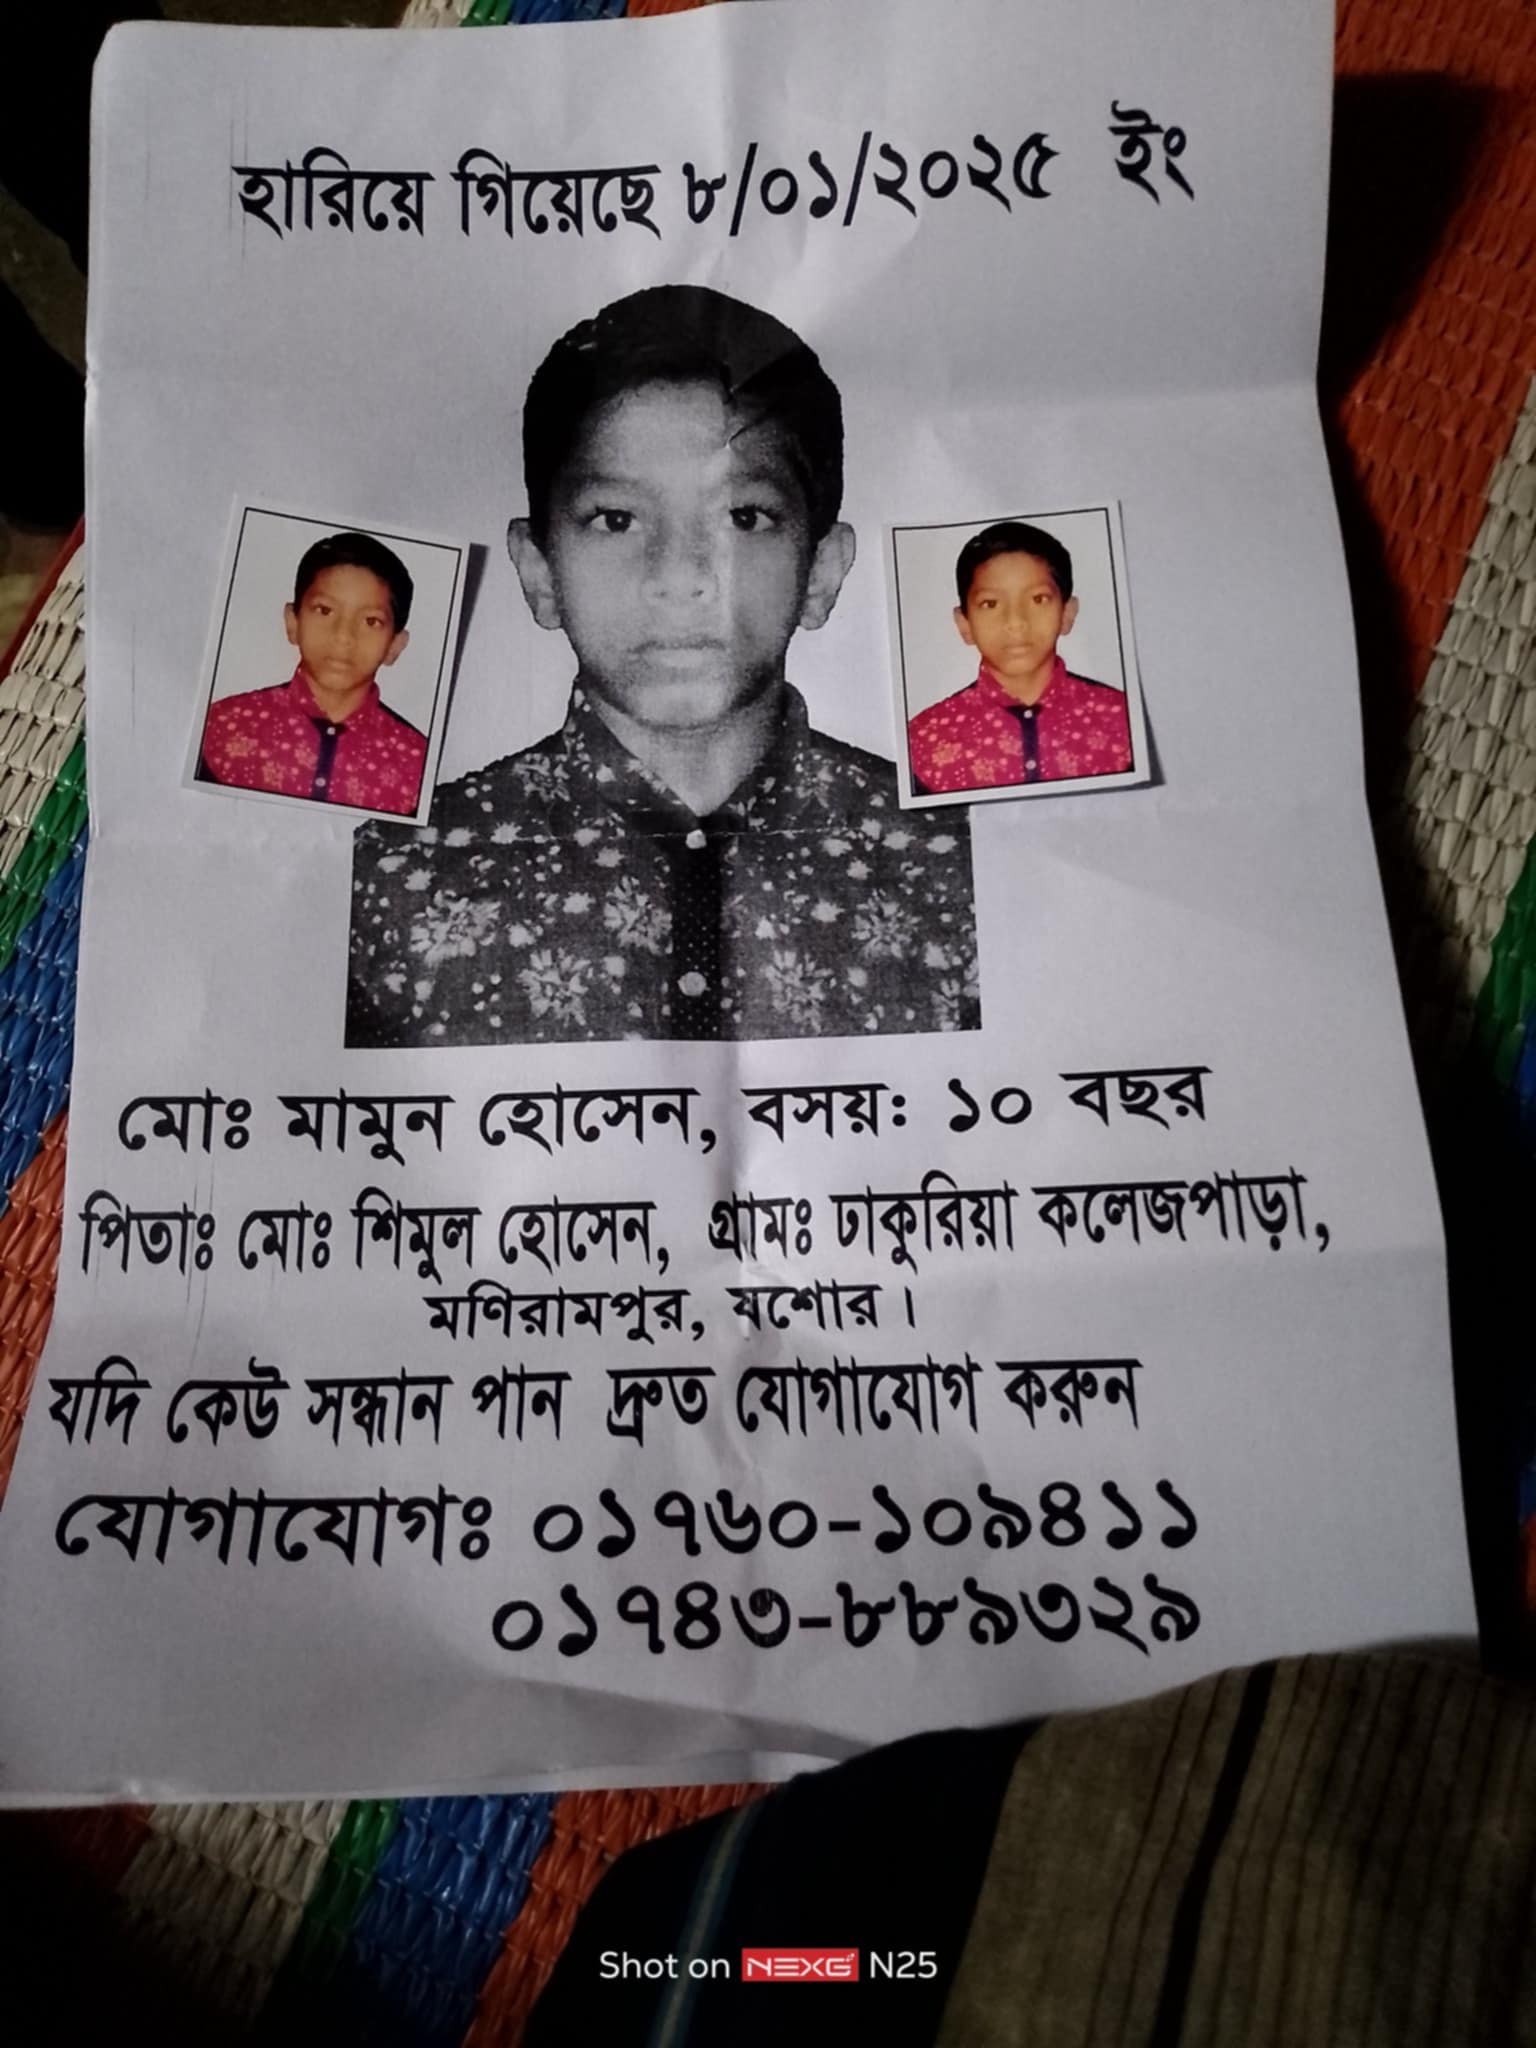 হারিয়ে গিয়েছে ৮/০১/২০২৫ ইং
মোঃ মামুন হোসেন, বসয়ঃ ১০ বছর
পিতাঃ মোঃ শিমুল হোসেন, গ্রামঃ ঢাকুরিয়া কলেজপাড়া,
মণিরামপুর, যশোর।
যদি কেউ সন্ধান পান দ্রুত যোগাযোগ করুন
যোগাযোগঃ ০১৭৬০-১০৯৪১১
০১৭৪৩-৮৮৯৩২৯
Shot on NEXG N25